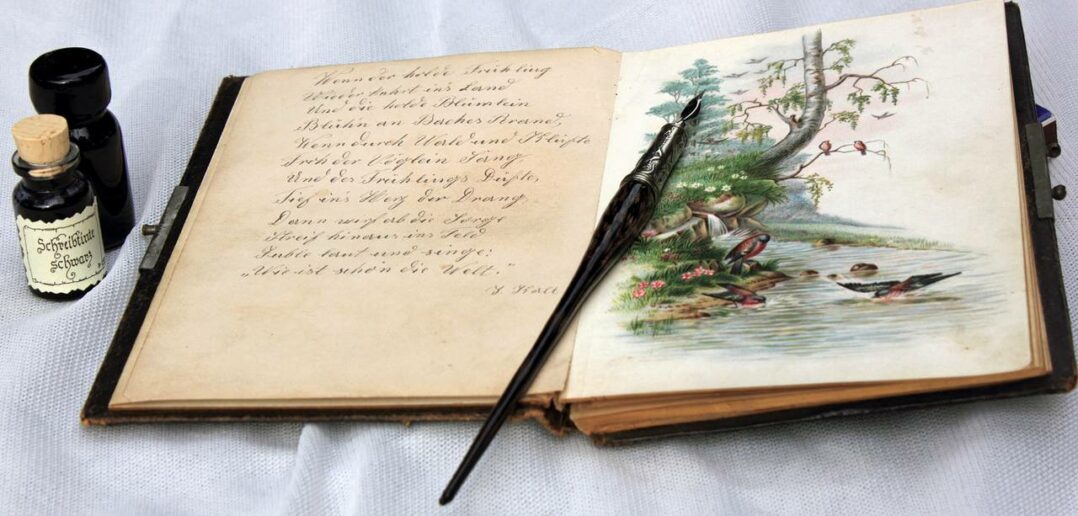 Wenn der holde Frühling
Wieder ins Land
Und die holde Blümlein
Blühn an Baches Strand,
Wenn durch Wald und Klüfte
der Vöglein Sang
Und des Frühlings Düfte,
Tief ins Herz der Drang
Dann werf ab die Sorge
Streif hinaus ins Feld
Juble laut und singe:
„Wie ist schön die Welt.
Schreibtinte
Schwarz